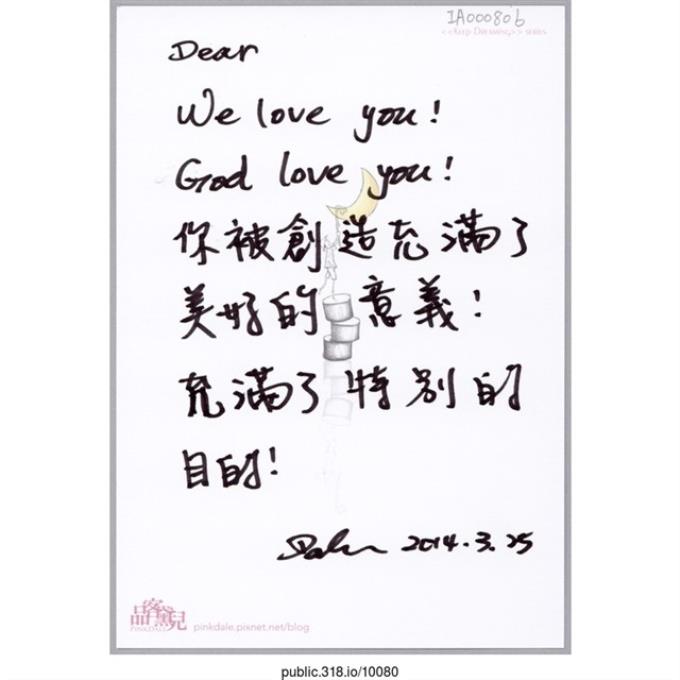 IA000806
<<KEEP DREAMING>> SERIES
Dear
We love you!
God love you!
你被創造充滿了
美好的意義!
充滿了特別的
目的!
2014.3.25
品客黛兒
PINKDALE
pinkdale.pixnet.net/blog
public.318.io/10080